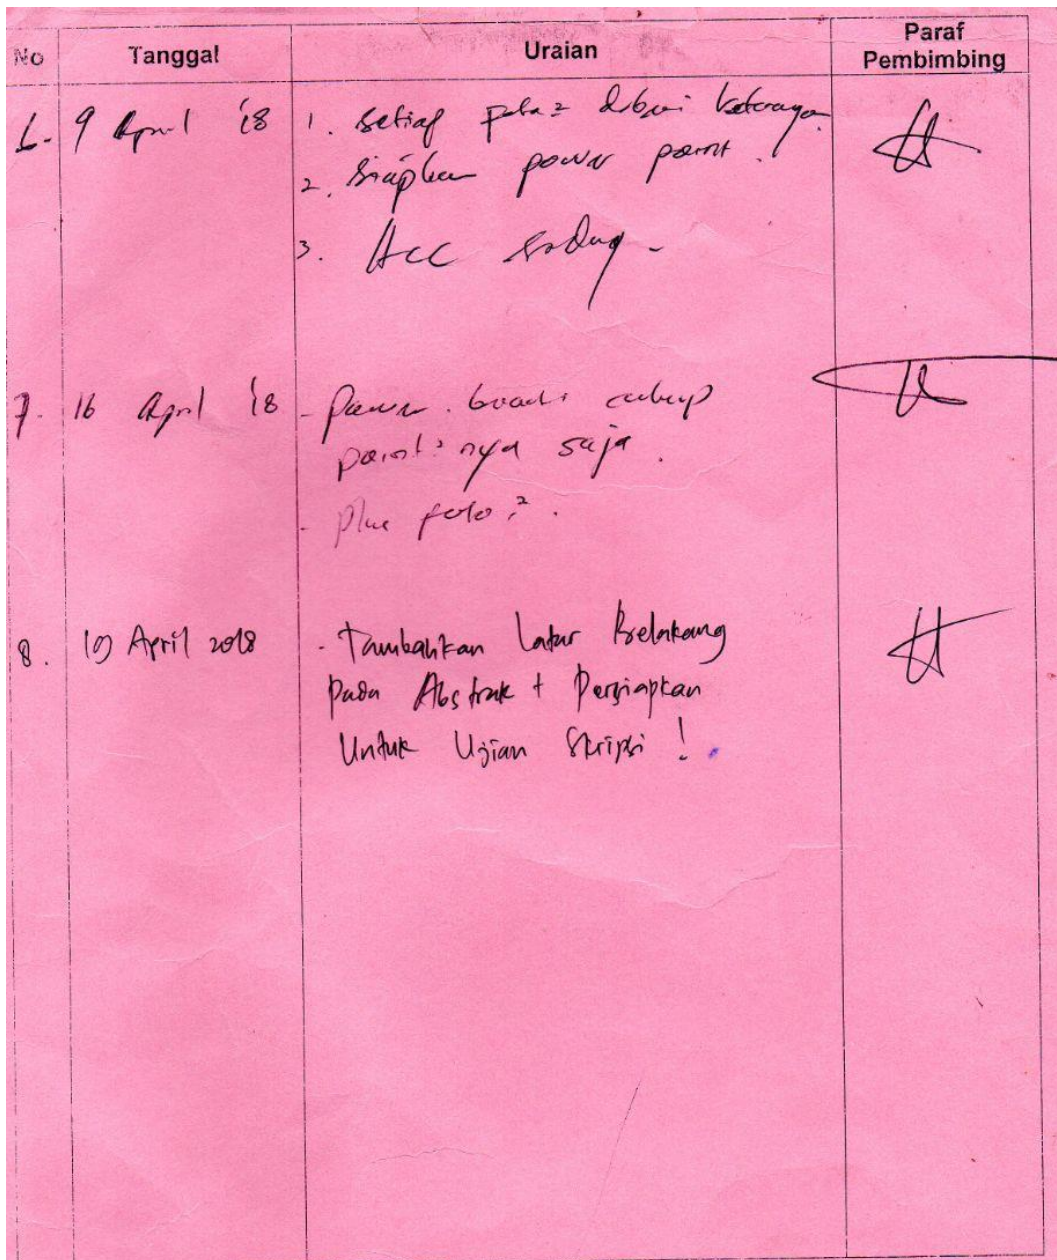 No Tanggal Uraian Paraf Pembimbing
6. 9 April '18 1. setiap peta2 diberi keterangan
2. siapkan power point.
3. Acc sidang.
7. 16 April '18 - Power cukup
point2nya saja.
- Plus foto2.
8. 19 April 2018 - Tambahkan Latar Belakang
pada Abstrak + Persiapkan
Untuk Ujian Skripsi !